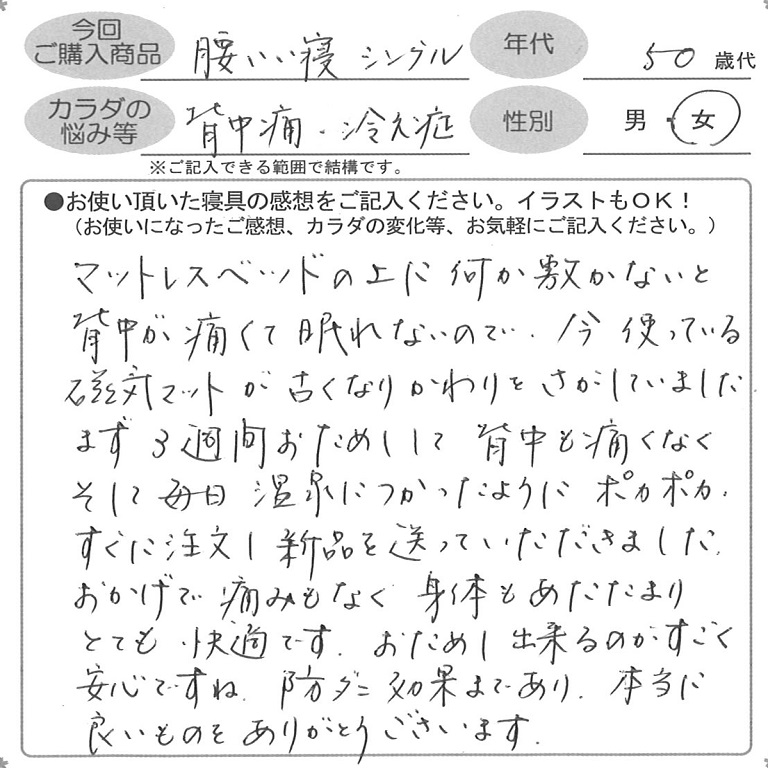 今回
ご購入商品
腰いい寝 シングル
年代
50 歳代
カラダの
悩み等
背中痛・冷え症
性別
男・女
※ご記入できる範囲で結構です。
●お使い頂いた寝具の感想をご記入ください。イラストもOK！
（お使いになったご感想、カラダの変化等、お気軽にご記入ください。）
マットレスベッドの上に何か敷かないと
背中が痛くて眠れないので、今使っている
磁気マットが古くなりかわりをさがしていました
まず3週間おためしして背中も痛くなく
そして毎日温泉につかったようにポカポカ.
すぐに注文し新品を送っていただきました.
おかげで痛みもなく身体もあたたまり
とても快適です.おためし出来るのがすごく
安心ですね.防ダニ効果まであり.本当に
良いものをありがとうございます.